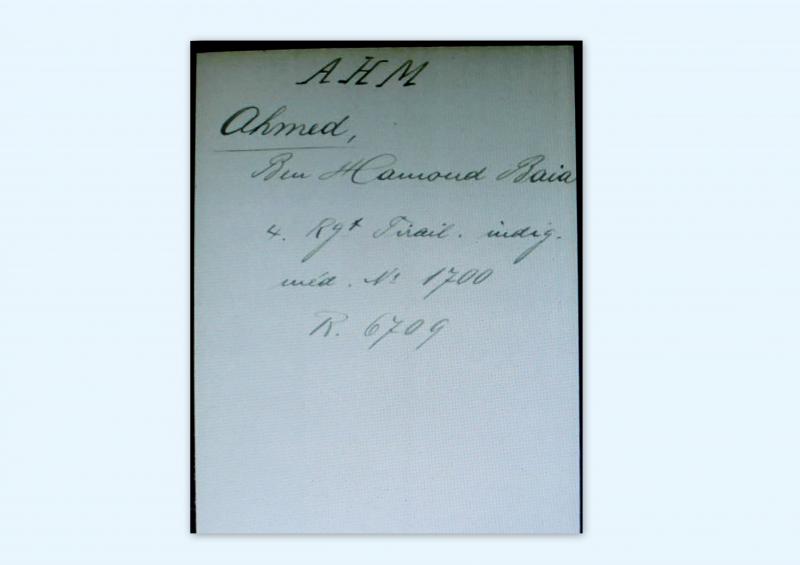 AHM
Ahmed,
Ben Hamoud Baia
4. Rgt Tirail. indig.
méd. No 1700
R. 6709